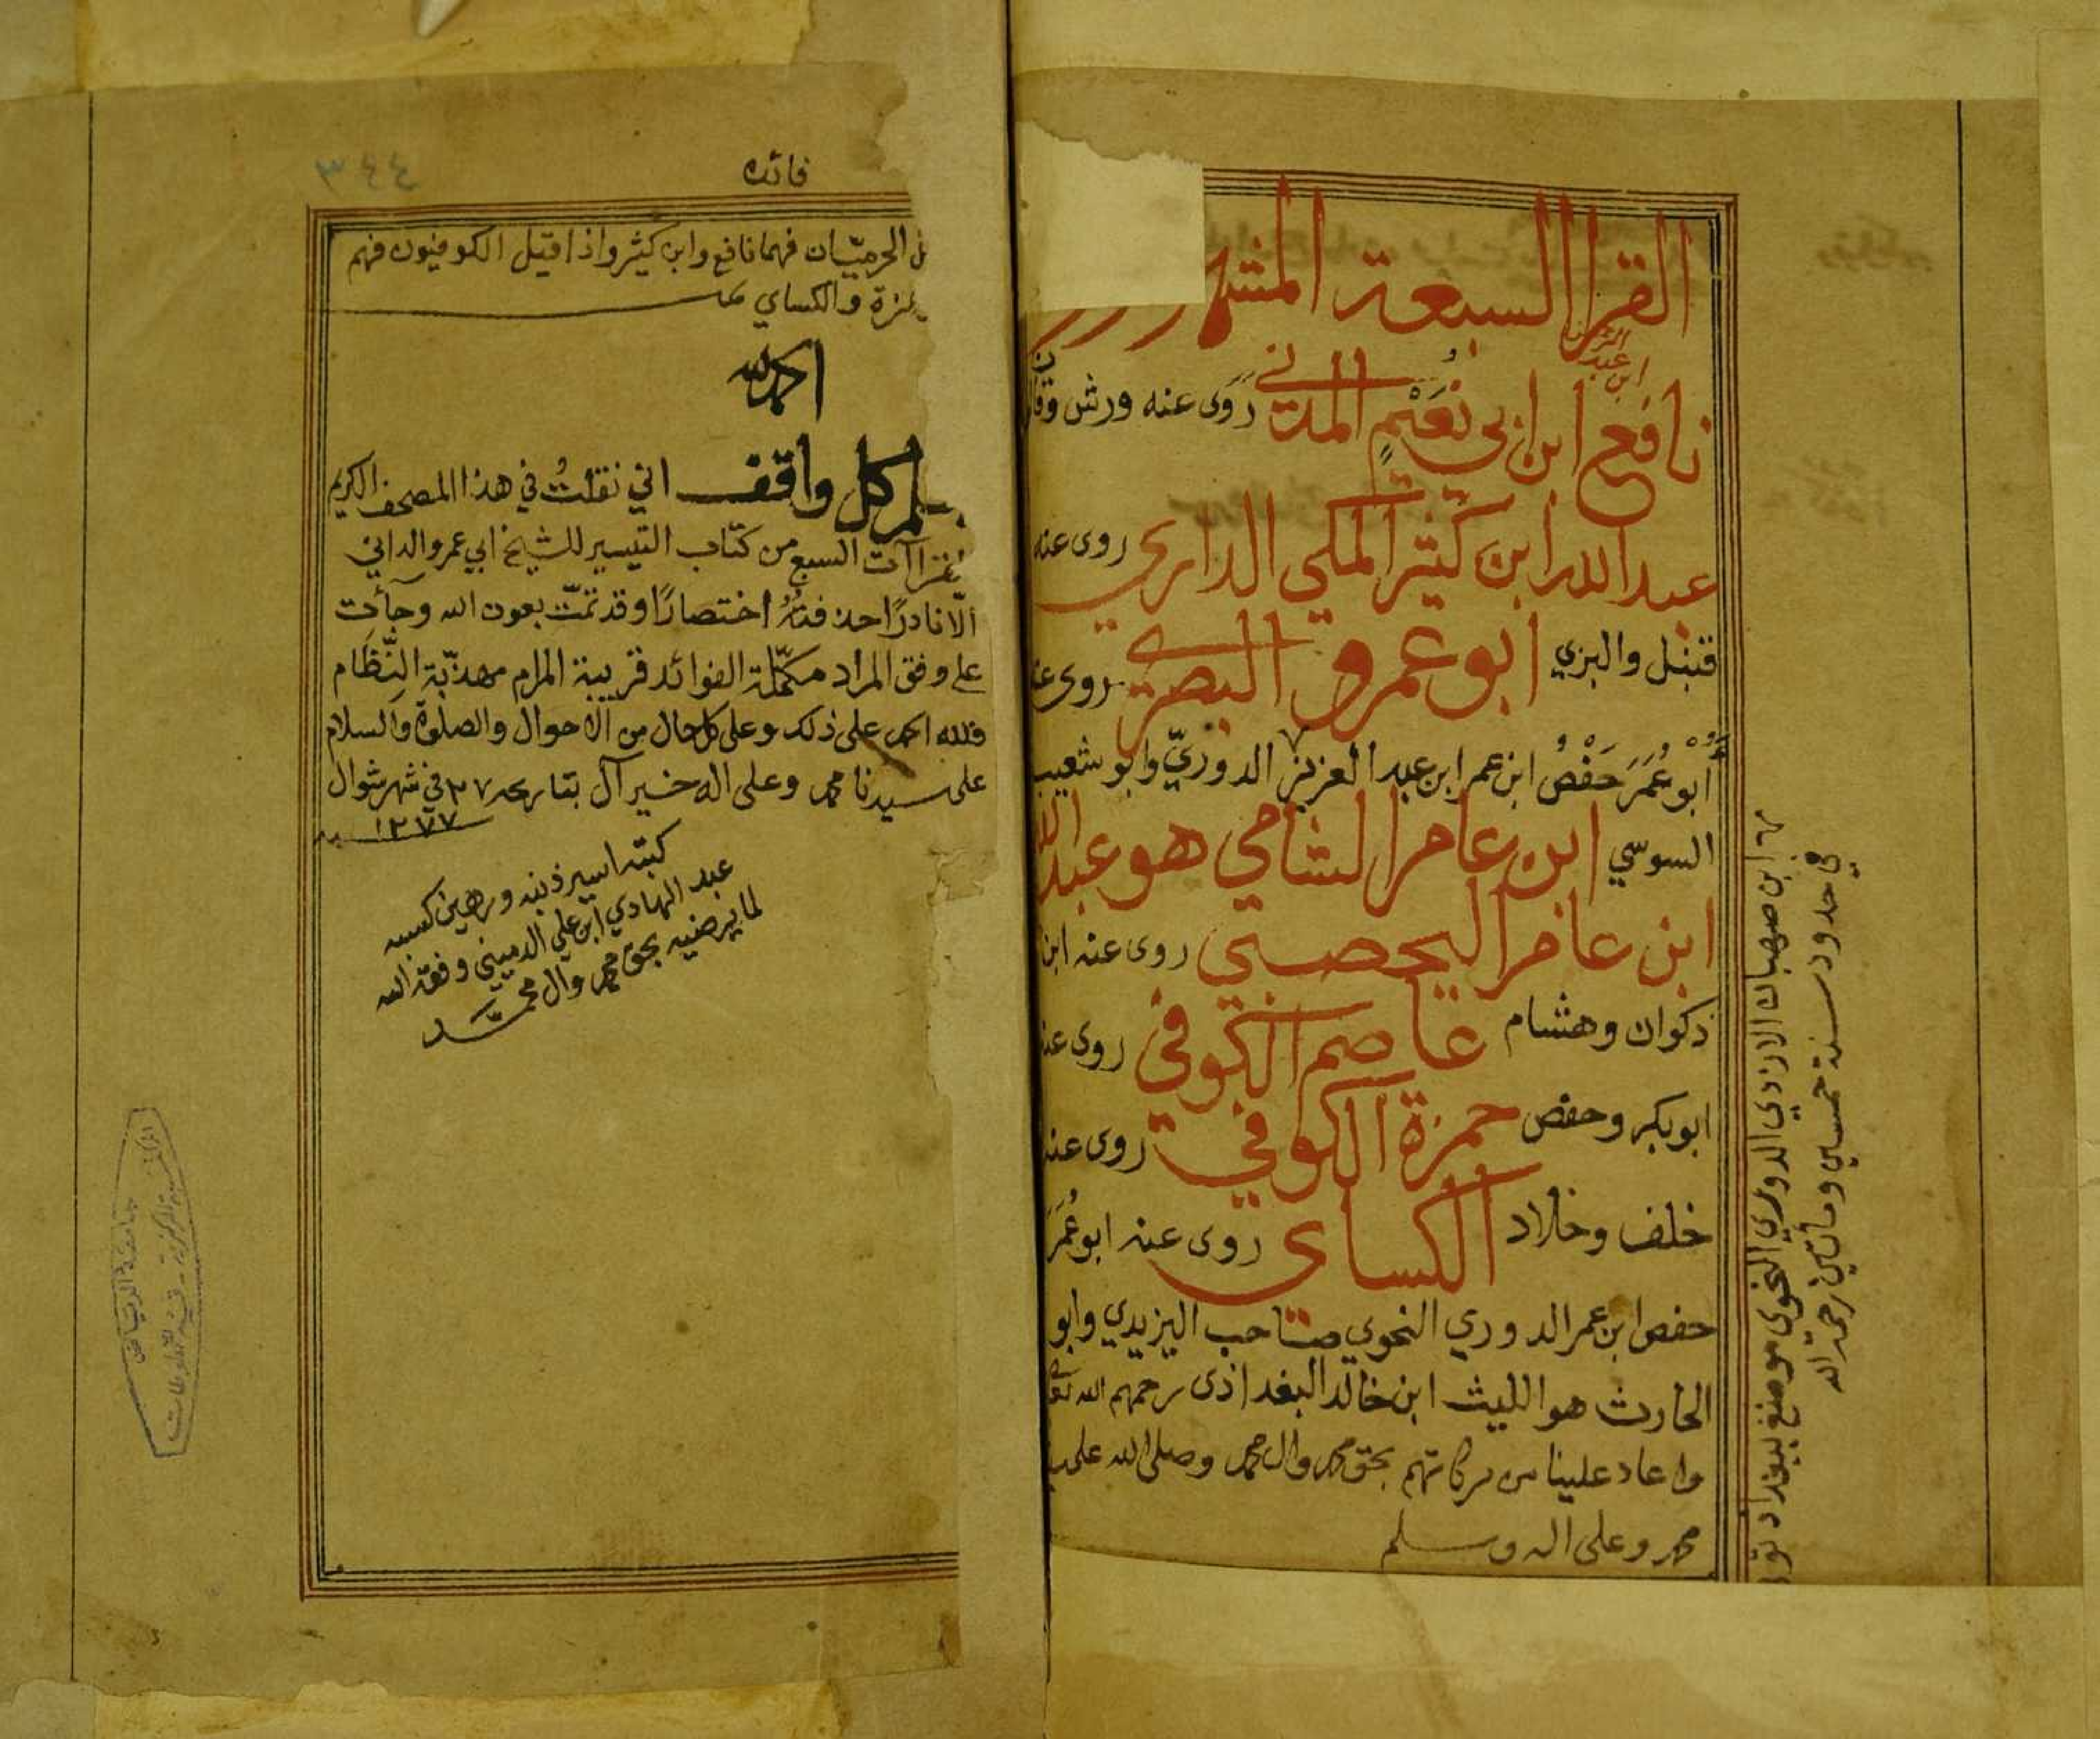 القرا السبعة
ابن عبد الرحمن
نافع ابن ابي نُعَيْمٍ المدني رَوَى عنه ورش
عبد الله ابن كثير المكي الداري روى عنه
قنبل والبزي ابو عمرو البصري روى
أبو عُمَرَ حَفْصُ ابن عمر ابن عبد العزيز الدوريّ وابو شعيب
السوسي ابن عامر الشامي هو عبد الله
ابن عامر اليحصبي روى عنه ابن
ذكوان وهشام عاصم الكوفي روى
ابو بكر وحفص حمزة الكوفي روى عنه
خلف وخلاد الكساى روى عنه ابو عُمَرَ
حفص ابن عمر الدوري النحوي صاحب اليزيدي وابو
الحارث هو الليث ابن خالد البغداذى رحمهم الله
واعاد علينا من بركاتهم بحق محمد وال محمد وصلى الله على
محمد وعلى اله وسلم
ابن صهبان الازدي الدوري النحوى موضع ببغداد
في حدود سنة خمسين ومأتين رحمة الله
فائده
الحرميّان فهما نافع وابن كثير واذا قيل الكوفيون فهم
والكساي
الحمد لله
كل واقف اني نقلتُ في هذا المصحف الكريم
السبع من كتاب التيسير للشيخ ابي عمرو الداني
الّا نادرًا حذفتُهُ اختصارًا وقد تمّت بعون الله وجآءت
على وفق المراد مكمّلة الفوائد قريبة المرام مهذّبة النِّظَام
فلله الحمد على ذلك وعلى كل حال من الاحوال والصلوة والسلام
على سيدنا محمد وعلى اله خير آل بتاريخه ٢٧ في شهر شوال
١٢٧٧
كتبه اسير ذنبه ورهين كسبه
عبد الهادي ابن علي وفقه الله
لما يرضيه بحق محمد وال محمّد
جامعة الرياض
٣٤٤